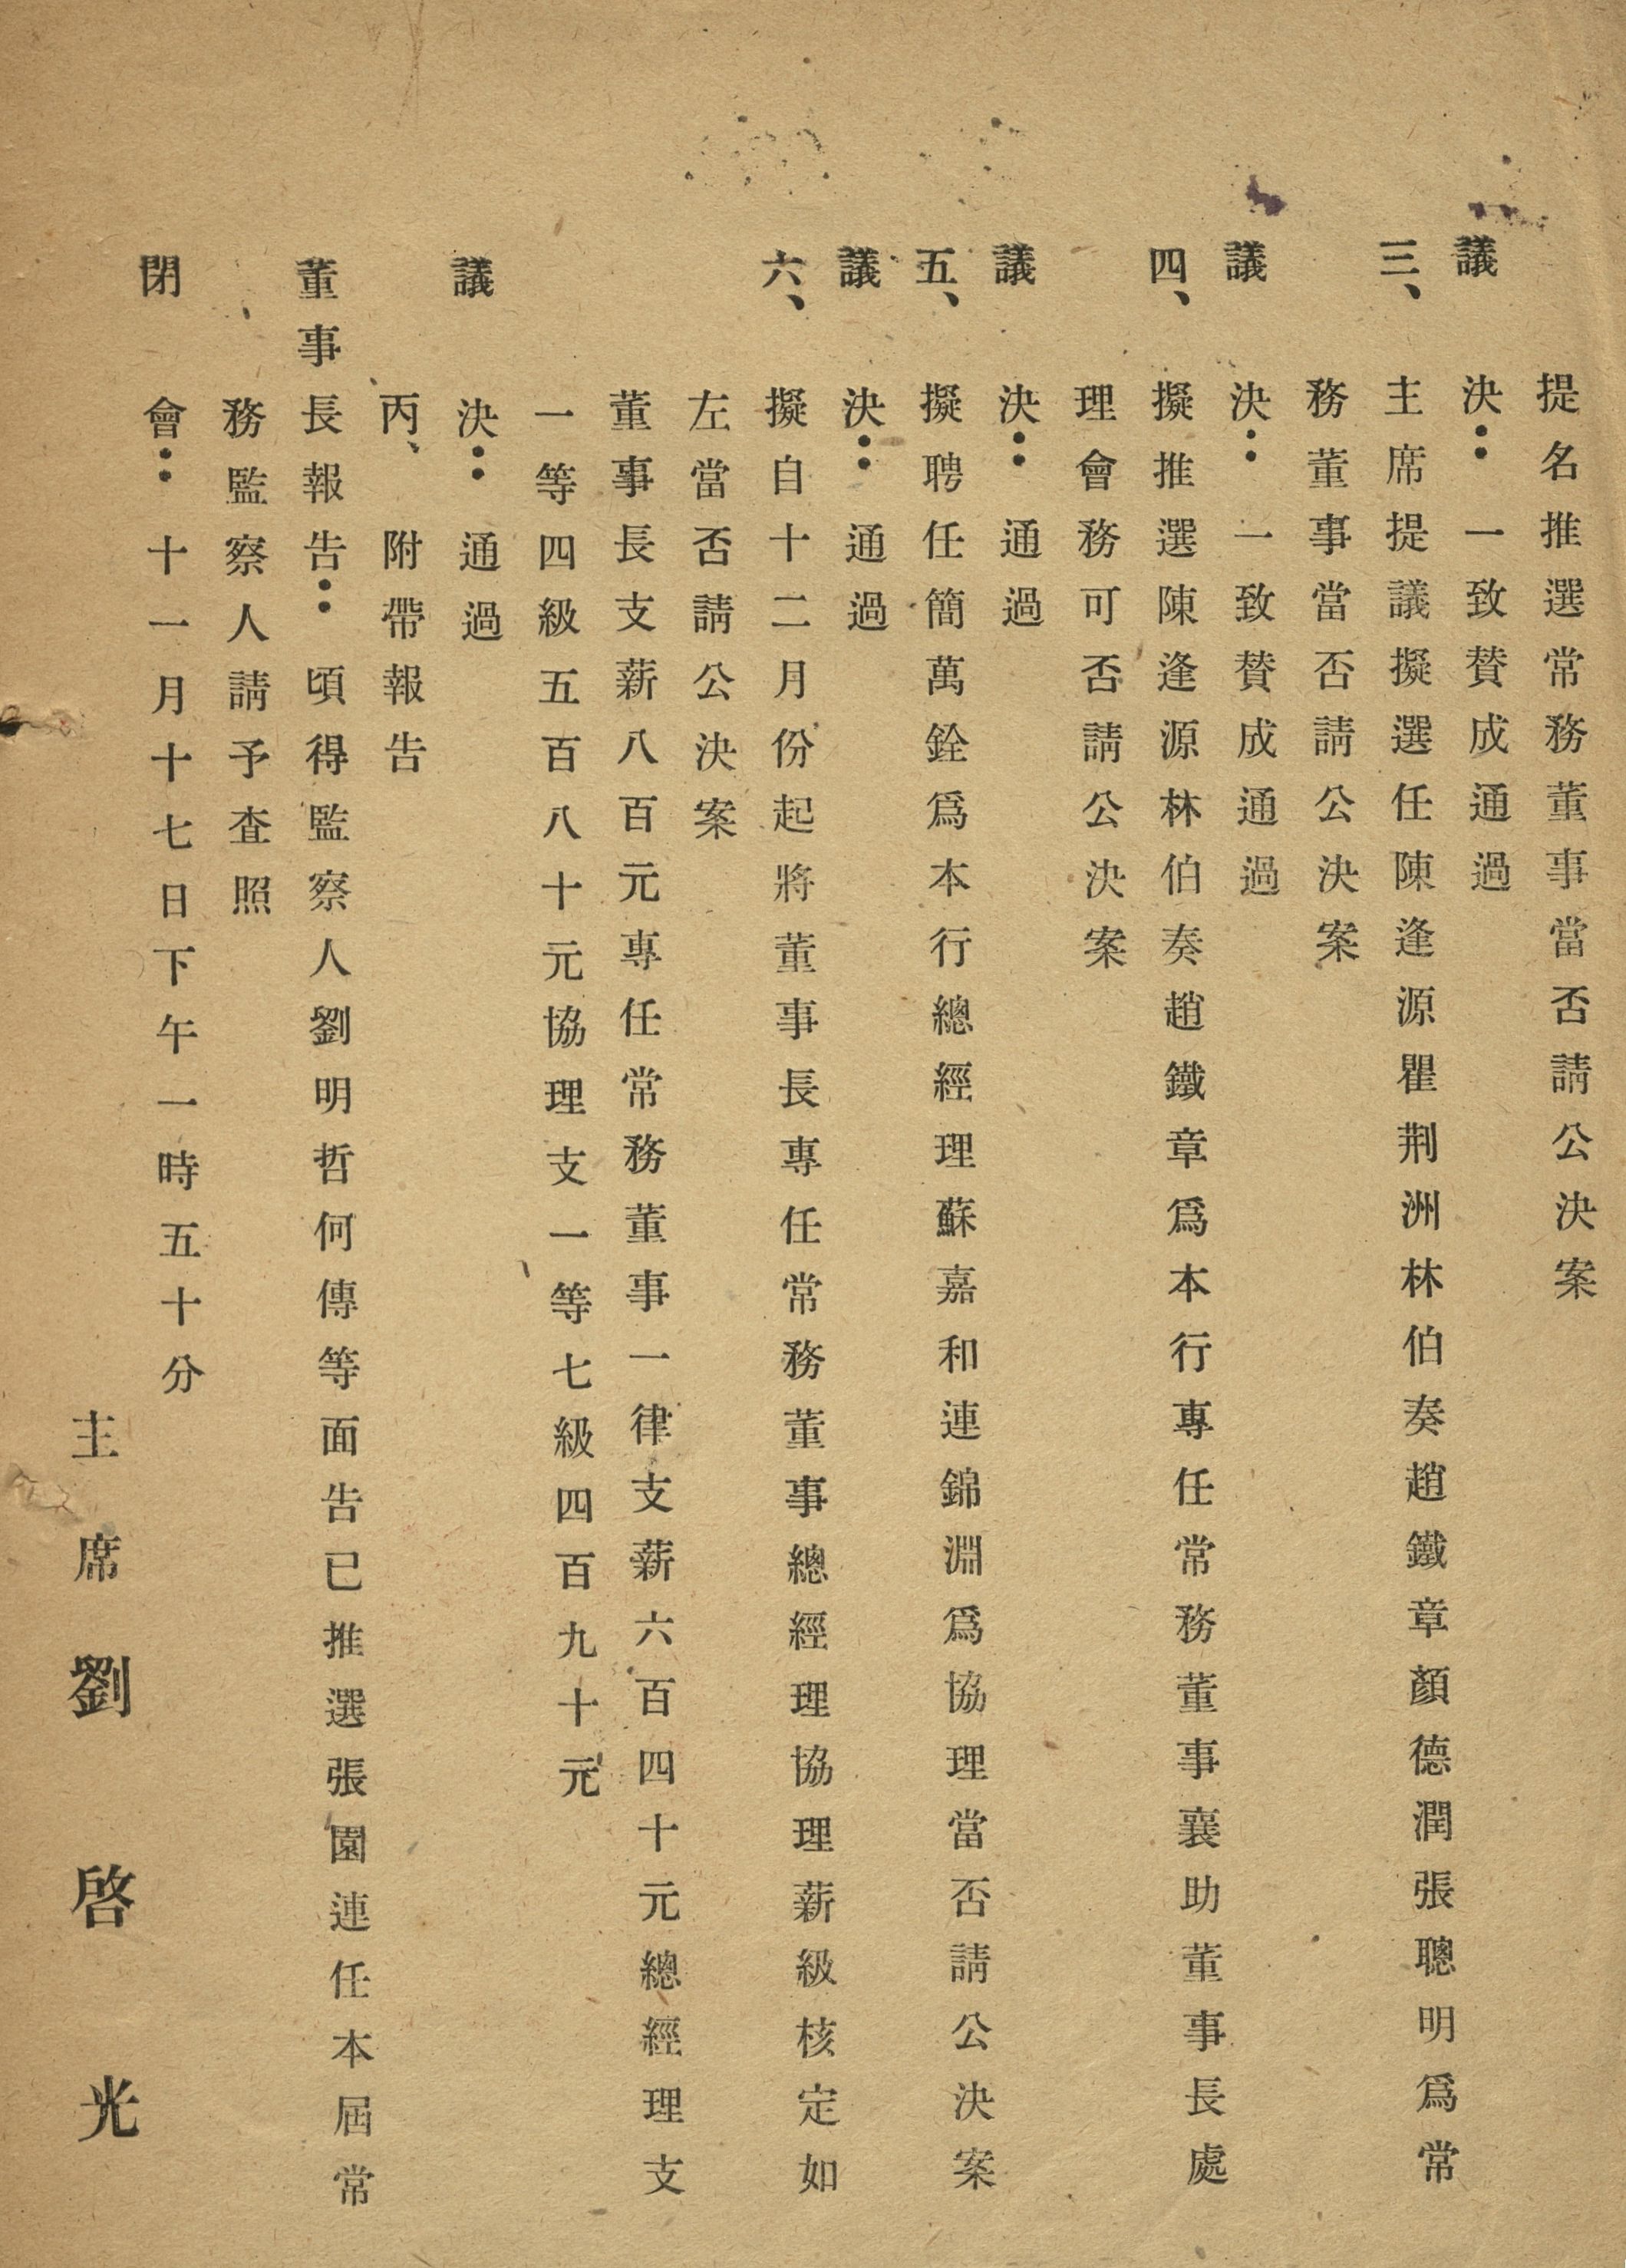 提名推選常務董事當否請公決案
議　決：一致賛成通過
三、主席提議擬選任陳逢源瞿荆洲林伯奏趙鐵章顏德潤張聰明爲常
務董事當否請公決案
議　決：一致賛成通過
四、擬推選陳逢源林伯奏趙鐵章爲本行專任常務董事襄助董事長處
理會務可否請公決案
議　決：通過
五、擬聘任簡萬銓爲本行總經理蘇嘉和連錦淵爲協理當否請公決案
議　決：通過
六、擬自十二月份起將董事長專任常務董事總經理協理薪級核定如
左當否請公決案
董事長支薪八百元專任常務董事一律支薪六百四十元總經理支
一等四級五百八十元協理支一等七級四百九十元
議　決：通過
丙、附帶報告
董事長報告：頃得監察人劉明哲何傳等面告已推選張園連任本屆常
務監察人請予查照
閉　會：十一月十七日下午一時五十分
主席劉啓光